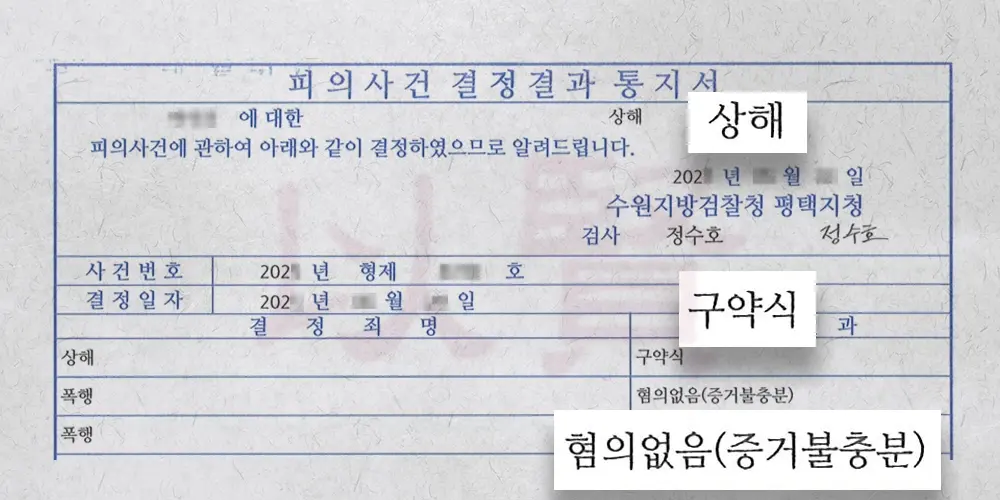 피의사건 결정결과 통지서
에 대한 상해 상해
피의사건에 관하여 아래와 같이 결정하였으므로 알려드립니다.
202 년 월 일
수원지방검찰청 평택지청
검사 정수호 정수호
사건번호 202 년 형제 호
결정일자 202 년 월 일
결 정 죄 명 구약식 과
상해 구약식
폭행 혐의없음(증거불충분)
폭행 혐의없음(증거불충분)